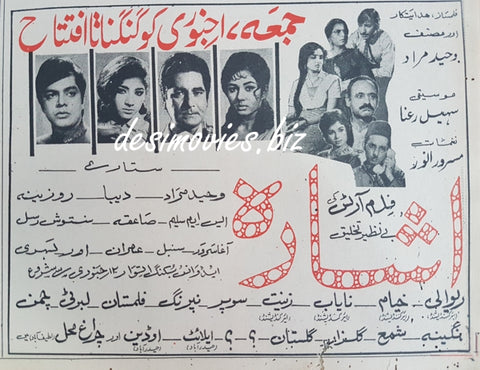 جمعہ، ۱؍جنوری کو گنگناتا افتتاح
فلمساز، ہدایتکار
اور مصنف
وحید مراد
موسیقی
سہیل رعنا
نغمات
مسرور انور
desimovies.biz
ستارے
وحید مراد دیبا روزینہ
ایس ایم سلیم صاعقہ سنتوش رسل
آغا سرور سنبل عمران اور لہری
فلم آرٹس کی
بے نظیر تخلیق
اشارہ
ریوالی خیام نایاب زینت سوپر نیرنگ فلمستان لبرٹی چمن
نگینہ شمع گلستان ؟ ؟ ایلائٹ اوڈین اور چراغ محل